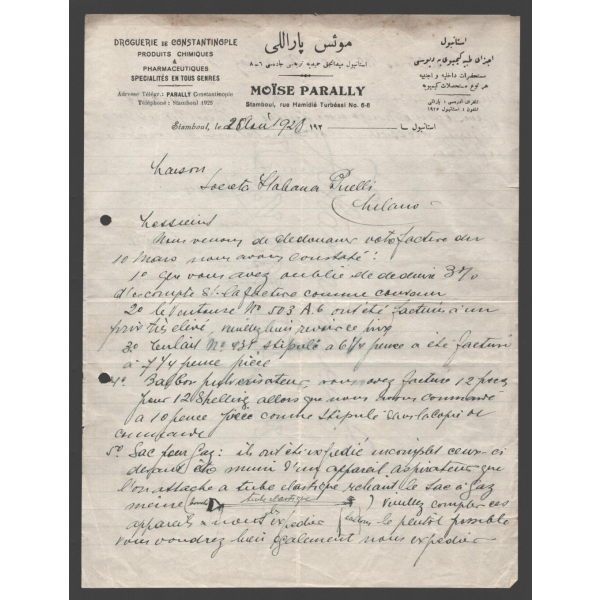 DROGUERIE DE CONSTANTINOPLE
PRODUITS CHIMIQUES
&
PHARMACEUTIQUES
SPECIALITÉS EN TOUS GENRES
Adresse Télégr.: PARALLY Constantinople
Téléphone: Stamboul 1925
موئس پاراللی
MOÏSE PARALLY
Stamboul, rue Hamidié Turbéssi No. 6-8
استانبول
اجزای طبیه و کیمیویه دپوسی
مستحضرات داخلیه و اجنبیه
Stamboul, le 28 1928 ١٩٢ استانبول
Maison
Societa Italiana Pirelli
Milano
Messieurs
Nous venons de dedouaner votre facture du
10 Mars nous avons constaté:
1º que vous avez oublié de deduire 3%
d'escompte la facture comme
2º le Ventouse Nº 503 A.6 ont été facturé à un
prix très élevé, veuillez bien le prix
3º Nº 438 stipulé à 6¼ pence a été facturé
à 7¼ pence pièce
4º pulverisateur, vous avez facturé 12 pièces
pour 12 Shelling alors que nous avons commandé
à 10 pence pièce comme stipulé la copie de
commande
5º Sac pour Gaz: ils ont été expedié incomplet ceux-ci
devant être muni d'un apparail aspirateur que
l'on attache a tube elastique le sac à gaz
meme tube elastique veuillez completer ces
apparails nous expedier le plutôt possible
vous voudrez bien également nous expedier